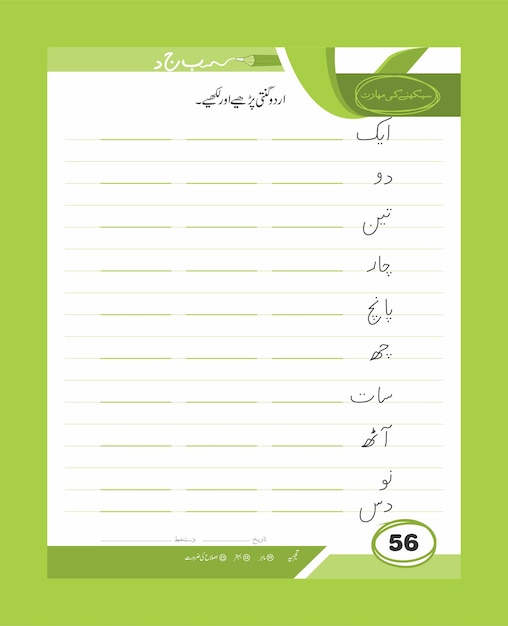 ا ب ج د
سیکھنے کی مہارت
اردو گنتی پڑھیے اور لکھیے۔
ایک
دو
تین
چار
پانچ
چھ
سات
آٹھ
نو
دس
تاریخ دستخط
56
تجزیہ ماہر بہتر اصلاح کی ضرورت